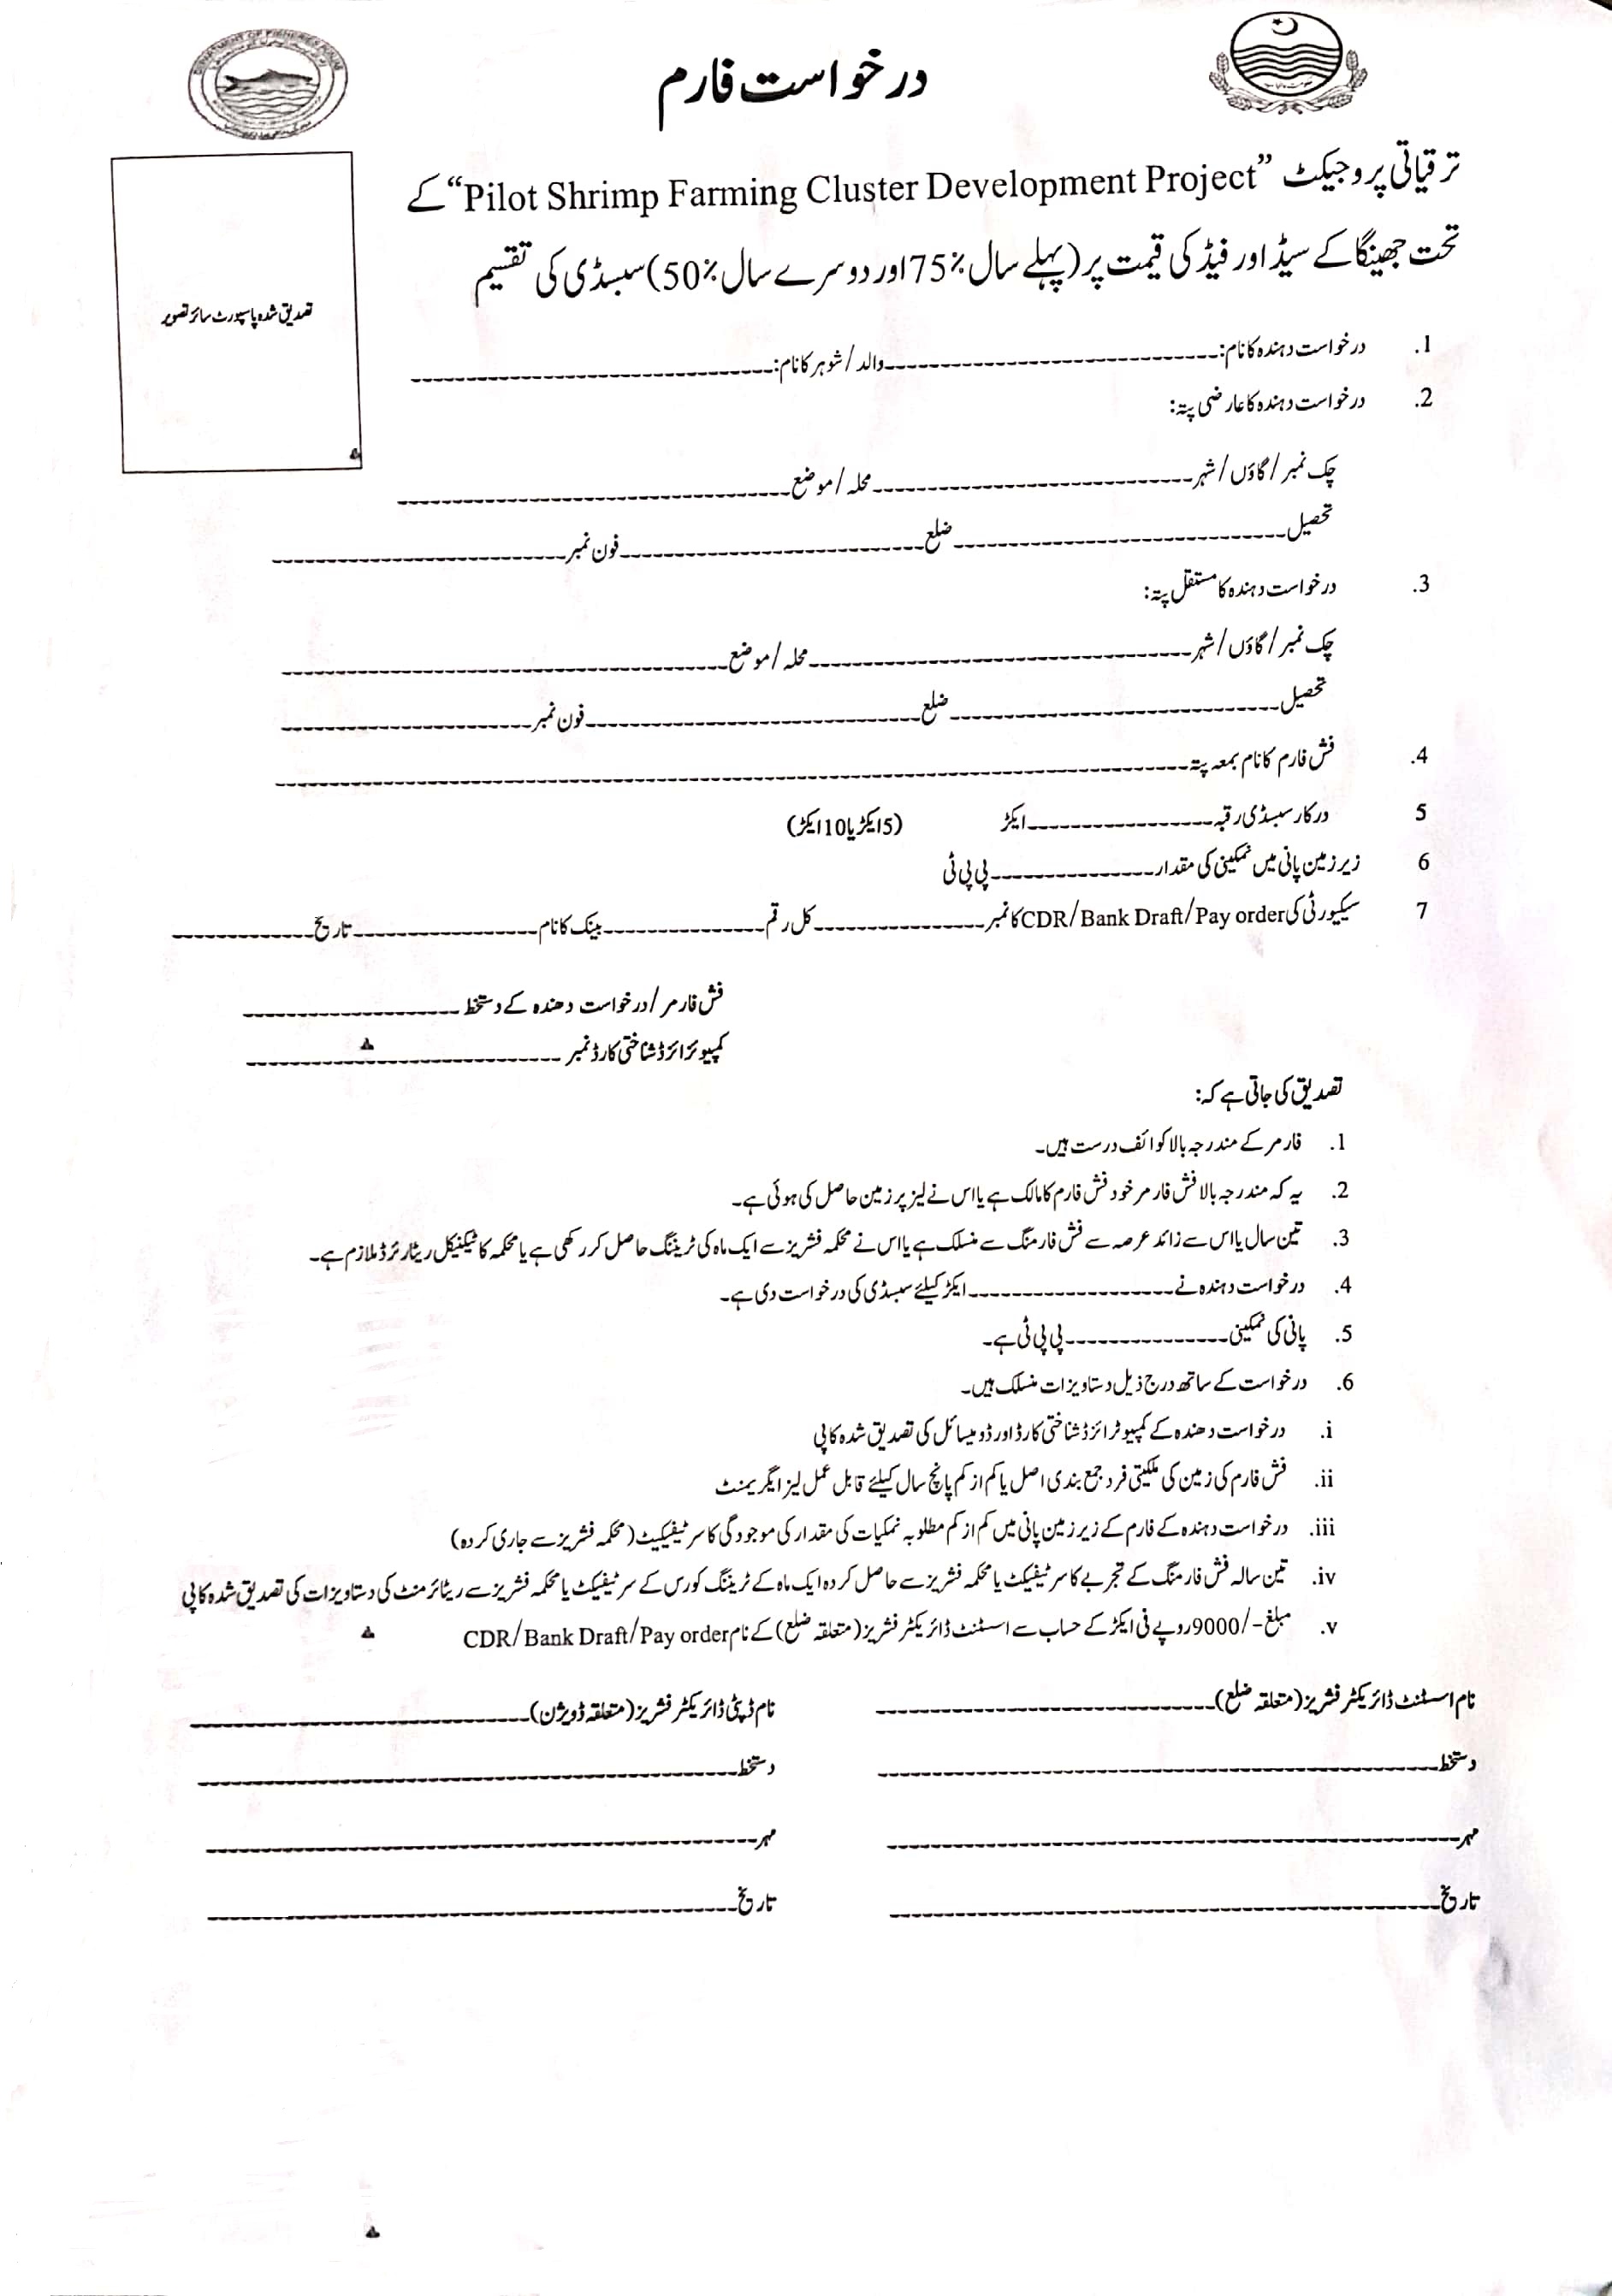 درخواست فارم
DEPARTMENT OF FISHERIES PUNJAB
ترقیاتی پروجیکٹ ”Pilot Shrimp Farming Cluster Development Project“ کے
تحت جھینگا کے سیڈ اور فیڈ کی قیمت پر (پہلے سال %75 اور دوسرے سال %50) سبسڈی کی تقسیم
تصدیق شدہ پاسپورٹ سائز تصویر
1. درخواست دہندہ کا نام:-------------------- والد / شوہر کا نام:--------------------
2. درخواست دہندہ کا عارضی پتہ:
چک نمبر / گاؤں / شہر-------------------- محلہ / موضع--------------------
تحصیل-------------------- ضلع-------------------- فون نمبر--------------------
3. درخواست دہندہ کا مستقل پتہ:
چک نمبر / گاؤں / شہر-------------------- محلہ / موضع--------------------
تحصیل-------------------- ضلع-------------------- فون نمبر--------------------
4. فش فارم کا نام بمعہ پتہ--------------------
5 درکار سبسڈی رقبہ-------------------- ایکڑ (5 ایکڑ یا 10 ایکڑ)
6 زیر زمین پانی میں نمکینی کی مقدار-------------------- پی پی ٹی
7 سیکیورٹی کی CDR/Bank Draft/Pay order کا نمبر-------------------- کل رقم-------------------- بینک کا نام-------------------- تاریخ--------------------
فش فارمر / درخواست دھندہ کے دستخط --------------------
کمپیوٹرائزڈ شناختی کارڈ نمبر --------------------
تصدیق کی جاتی ہے کہ:
1. فارمر کے مندرجہ بالا کوائف درست ہیں۔
2. یہ کہ مندرجہ بالا فش فارمر خود فش فارم کا مالک ہے یا اس نے لیز پر زمین حاصل کی ہوئی ہے۔
3. تین سال یا اس سے زائد عرصہ سے فش فارمنگ سے منسلک ہے یا اس نے محکمہ فشریز سے ایک ماہ کی ٹریننگ حاصل کر رکھی ہے یا محکمہ کا ٹیکنیکل ریٹائرڈ ملازم ہے۔
4. درخواست دہندہ نے-------------------- ایکڑ کیلئے سبسڈی کی درخواست دی ہے۔
5. پانی کی نمکینی-------------------- پی پی ٹی ہے۔
6. درخواست کے ساتھ درج ذیل دستاویزات منسلک ہیں۔
i. درخواست دھندہ کے کمپیوٹرائزڈ شناختی کارڈ اور ڈومیسائل کی تصدیق شدہ کاپی
ii. فش فارم کی زمین کی ملکیتی فرد جمع بندی اصل یا کم از کم پانچ سال کیلئے قابل عمل لیز ایگریمنٹ
iii. درخواست دہندہ کے فارم کے زیر زمین پانی میں کم از کم مطلوبہ نمکیات کی مقدار کی موجودگی کا سرٹیفیکیٹ (محکمہ فشریز سے جاری کردہ)
iv. تین سالہ فش فارمنگ کے تجربے کا سرٹیفیکٹ یا محکمہ فشریز سے حاصل کردہ ایک ماہ کے ٹریننگ کورس کے سرٹیفیکٹ یا محکمہ فشریز سے ریٹائرمنٹ کی دستاویزات کی تصدیق شدہ کاپی
v. مبلغ -/9000 روپے فی ایکڑ کے حساب سے اسسٹنٹ ڈائریکٹر فشریز (متعلقہ ضلع) کے نام CDR/Bank Draft/Pay order
نام اسسٹنٹ ڈائریکٹر فشریز (متعلقہ ضلع)-------------------- نام ڈپٹی ڈائریکٹر فشریز (متعلقہ ڈویژن)--------------------
دستخط-------------------- دستخط--------------------
مہر-------------------- مہر--------------------
تاریخ-------------------- تاریخ--------------------